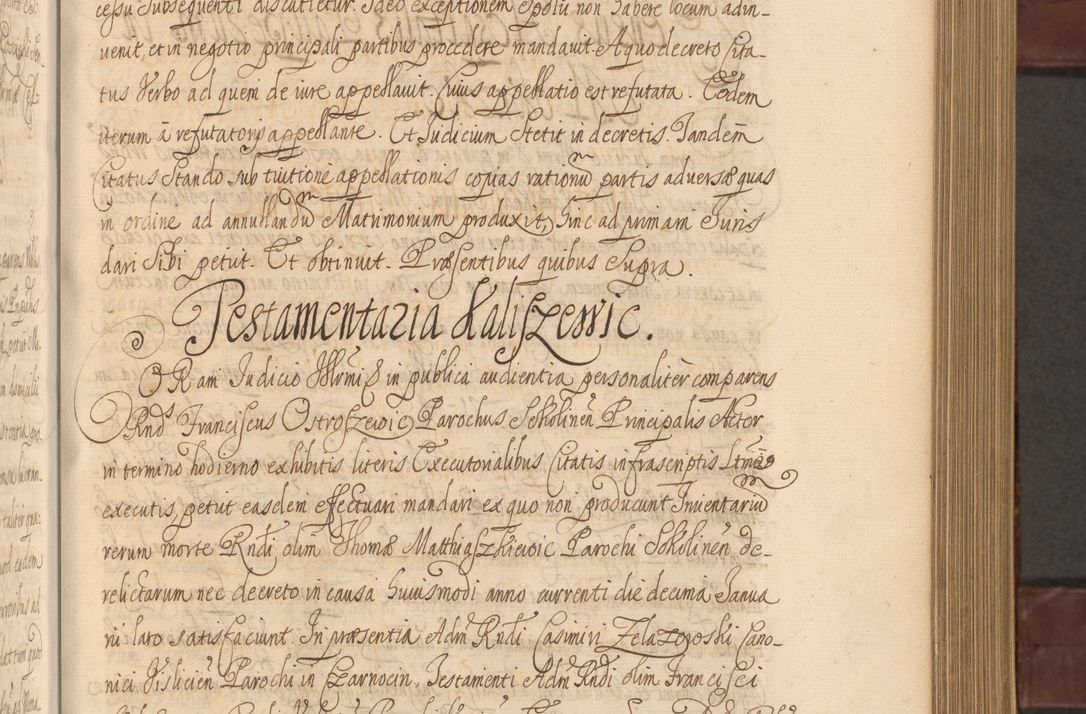 cessu Subsequenti discutietur. Ideo exceptionem Spolii non habere locum adin-
venit, et in negotio principali partibus procedere mandavit. A quo decreto Cita-
tus Verbo ad quem de iure appellavit. Cuius appellatio est refutata. Eodem
iterum à refutatorijs appellante. Et Judicium Stetit in decretis. Tandem
Citatus Stando sub tuitione appellationis copias rationum partis adversæ quas
in ordine ad annullandum Matrimonium produxit, hinc ad primam Juris
dari Sibi petiit. Et obtinuit. Præsentibus quibus Supra.
Testamentaria Kaliszewic.
CORam Judicio in publica audientia personaliter comparens
Rnds Franciscus Ostroszewic Parochus Principalis Actor
in termino hodierno exhibitis literis Executorialibus Citatis infrascriptis Ltme
executis, petiit easdem effectuari mandari ex quo non producunt Inventarium
rerum morte Rndi olim Thomæ Matthiaszkiewic Parochi de-
relictarum nec decreto in causa huiusmodi anno currenti die decima Janua
rii lato satisfaciunt. In præsentia Adm Rndi Casimiri Zelazowski Cano-
nici Vislicien Parochi in Czarnocin, Testamenti Adm Rndi olim Francisci